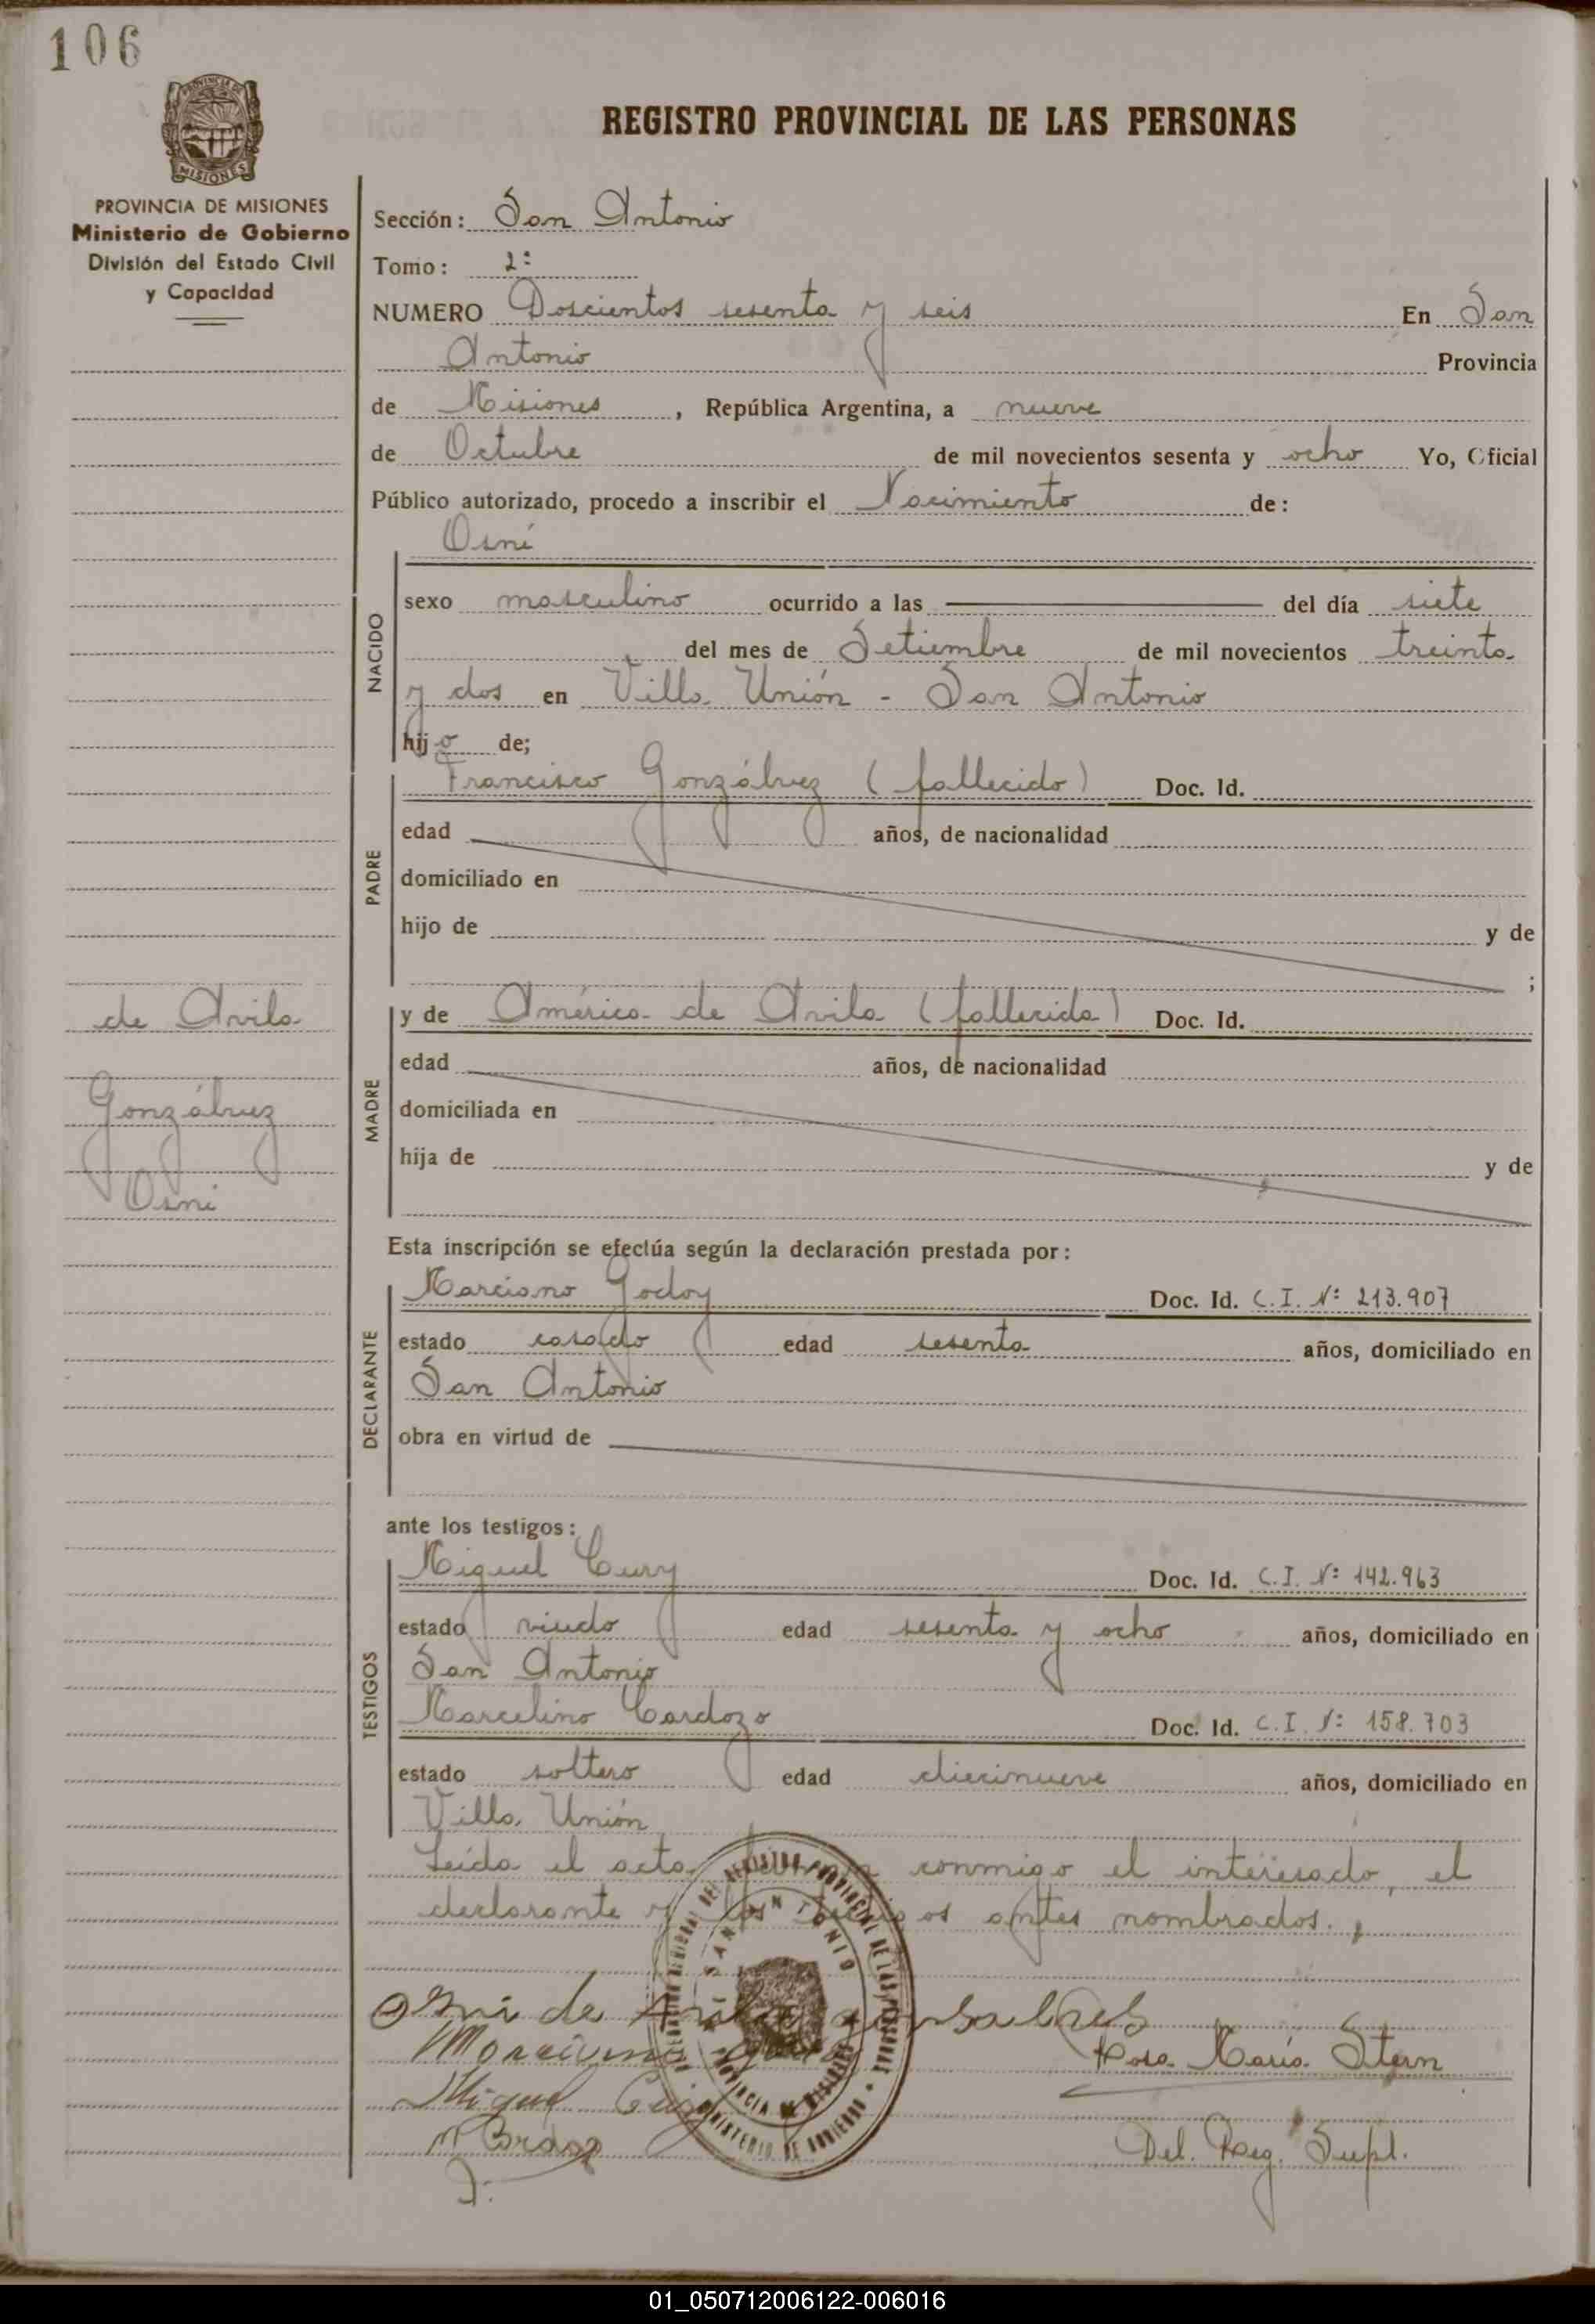 106
PROVINCIA DE MISIONES
MISIONES
PROVINCIA DE MISIONES
Ministerio de Gobierno
División del Estado Civil
y Capacidad
REGISTRO PROVINCIAL DE LAS PERSONAS
Sección: San Antonio
Tomo: 2º
NUMERO Doscientos sesenta y seis En San
Antonio Provincia
de Misiones, República Argentina, a nueve
de Octubre de mil novecientos sesenta y ocho Yo, Oficial
Público autorizado, procedo a inscribir el Nacimiento de:
Osni
NACIDO
sexo masculino ocurrido a las del día siete
del mes de Setiembre de mil novecientos treinta
y dos en Villa Unión - San Antonio
hijo de;
PADRE
Francisco Gonzálvez (fallecido) Doc. Id.
edad años, de nacionalidad
domiciliado en
hijo de y de
;
MADRE
y de América de Avila (fallecida) Doc. Id.
edad años, de nacionalidad
domiciliada en
hija de y de
de Avila
Gonzálvez
Osni
Esta inscripción se efectúa según la declaración prestada por:
DECLARANTE
Marciano Godoy Doc. Id. C.I. Nº 213.907
estado casado edad sesenta años, domiciliado en
San Antonio
obra en virtud de
ante los testigos:
TESTIGOS
Miguel Cury Doc. Id. C.I. Nº 142.963
estado viudo edad sesenta y ocho años, domiciliado en
San Antonio
Marcelino Cardozo Doc. Id. C.I. Nº 158.703
estado soltero edad diecinueve años, domiciliado en
Villa Unión
Leída el acta, firman conmigo el interesado, el
declarante y los testigos antes nombrados.
Osni de Avila gonsalves
Rosa María Stern
Miguel Cury
Del. Reg. Supl.
SAN ANTONIO
PROVINCIA DE MISIONES
MINISTERIO DE GOBIERNO
01_050712006122-006016